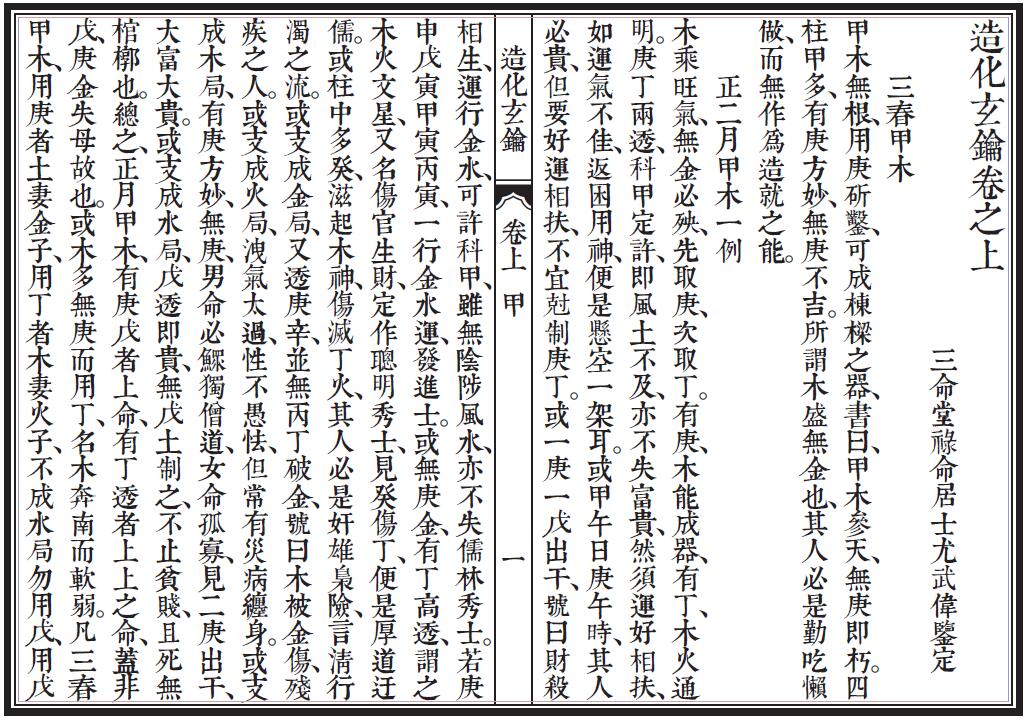 造化玄鑰卷之上
三命堂祿命居士尤武偉鑒定
三春甲木
甲木無根、用庚斫鑿、可成棟樑之器、書曰、甲木參天、無庚即朽。四
柱甲多、有庚方妙、無庚不吉。所謂木盛無金也、其人必是勤吃懶
做、而無作爲造就之能。
正二月甲木一例
木乘旺氣、無金必殃、先取庚、次取丁。有庚、木能成器、有丁、木火通
明。庚丁兩透、科甲定許、即風土不及、亦不失富貴、然須運好相扶、
如運氣不佳、返困用神、便是懸空一架耳。或甲午日庚午時、其人
必貴、但要好運相扶、不宜尅制庚丁。或一庚一戊出干、號曰財殺
造化玄鑰
卷上 甲
一
相生、運行金水、可許科甲、雖無陰陟風水、亦不失儒林秀士。若庚
申戊寅甲寅丙寅、一行金水運、發進士。或無庚金、有丁高透、謂之
木火文星、又名傷官生財、定作聰明秀士、見癸傷丁、便是厚道迂
儒。或柱中多癸、滋起木神、傷滅丁火、其人必是奸雄梟險、言淸行
濁之流。或支成金局、又透庚辛、並無丙丁破金、號曰木被金傷、殘
疾之人。或支成火局、洩氣太過、性不愚怯、但常有災病纏身。或支
成木局、有庚方妙、無庚、男命必鰥獨僧道、女命孤寡、見二庚出干、
大富大貴。或支成水局、戊透即貴、無戊土制之、不止貧賤、且死無
棺槨也。總之、正月甲木、有庚戊者上命、有丁透者上上之命、蓋非
戊、庚金失母故也。或木多無庚而用丁、名木奔南而軟弱。凡三春
甲木、用庚者土妻金子、用丁者木妻火子、不成水局勿用戊、用戊